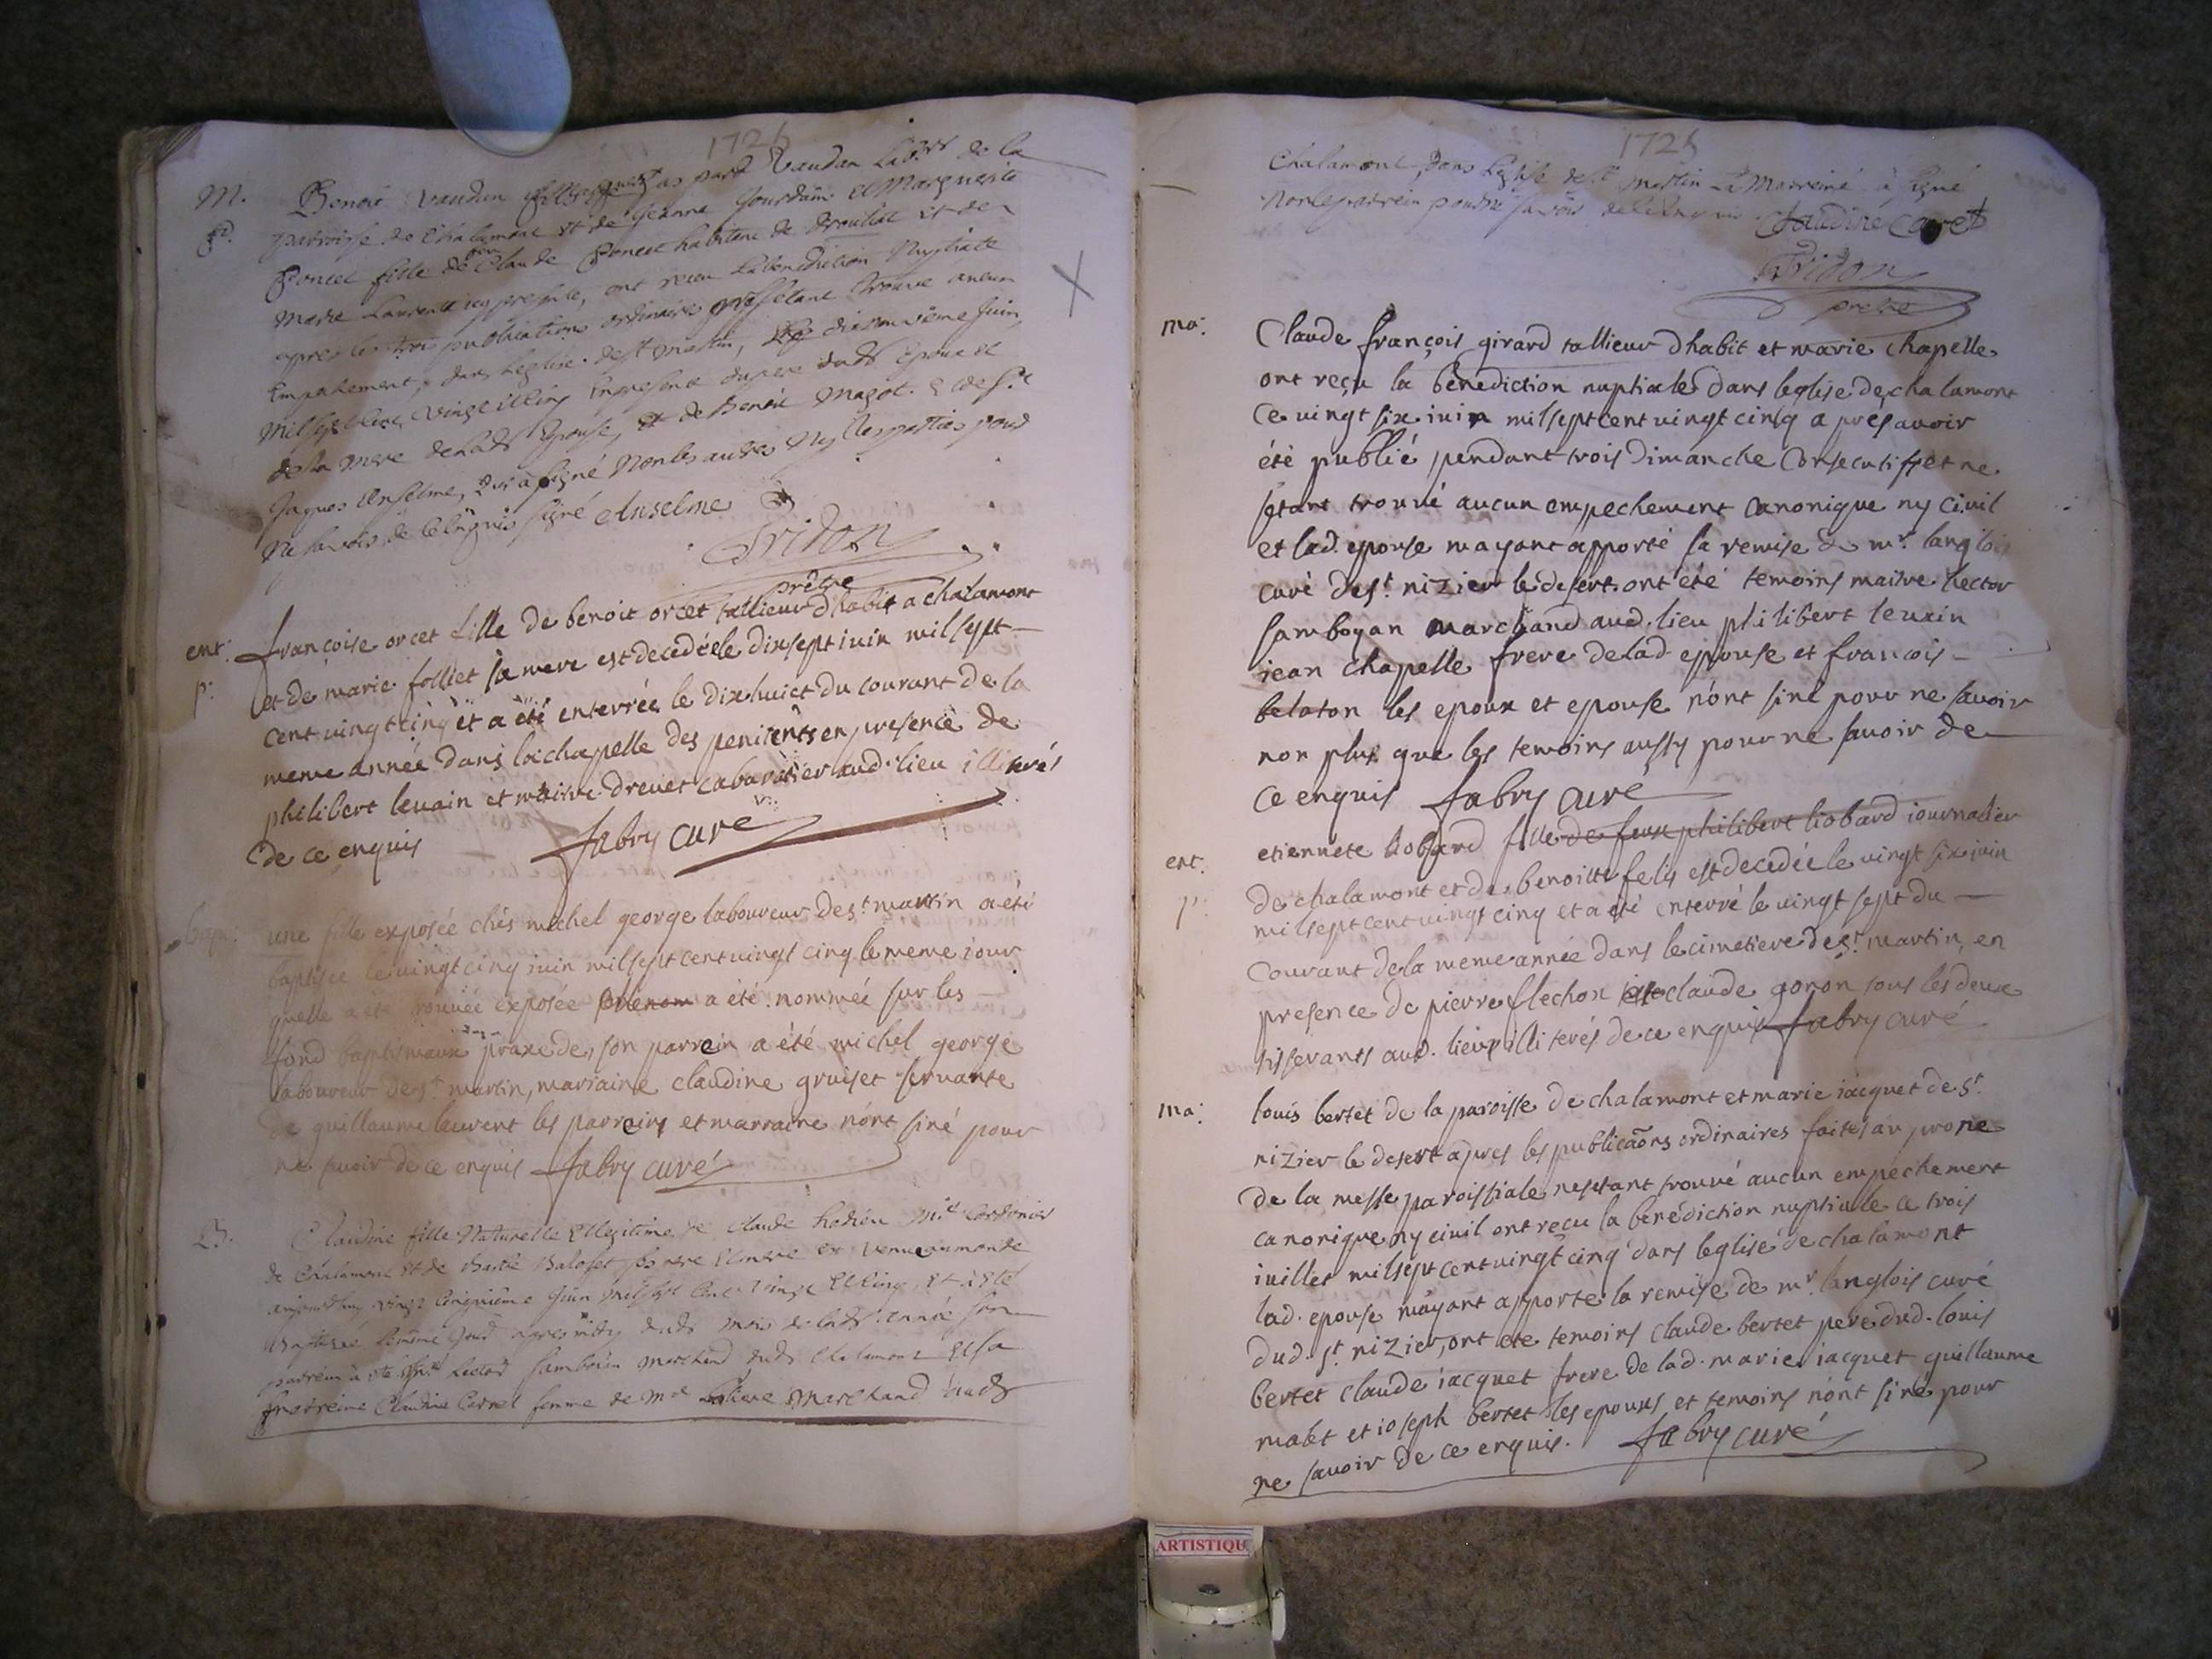 1725
M. Benoit Vaudan fils de par Vaudan Labr de la
p. parroisse de Chalamont et de Jeanne Jourdain et Marguerite
Poncet fille de feu Claude Poncet habitant de et de
Marie Laurent icy presente, ont receu la benediction Nuptiale
apres les trois publications ordinaires ne sestant trouvé aucun
Empechement, dans Leglise de st Martin, Le dixneuvieme Juin
Mil sept Cent Vingt et Cinq En presence du pere dudt Epoux et
de la Mere deladt Epouse, et de Benoit Magot. & de sr
Jaques Anselme, qui a signé Non les autres Ny les parties pour
Ne savoir de ce Enquis signé Anselme
Fridon
prêtre
ent. françoise orcet fille de benoit orcet tallieur dhabit a chalamont
p. et de marie folliet sa mere est decedée le dixsept iuin mil sept
cent vingt cinq et a été enterrée le dix huict du courant de la
meme année dans la chapelle des penitents en presence de
philibert levain et maitre drevet cabaretier aud. lieu illiterés
de ce enquis fabry curé
bapt. une fille exposée chés michel george laboureur de st martin a été
baptisée le vingt cinq iuin mil sept cent vingt cinq le meme iour
quelle a été trouvée exposée a été nommée sur les
fond baptismaux praxede, son parrein a été michel george
laboureur de st martin, mariaine claudine gruiset servante
de guillaume laurent les parrein et marraine n'ont siné pour
ne savoir de ce enquis fabry curé
B. Claudine fille Naturelle Et legitime de Claude hodieu Mtre Cordonier
de Chalamont Et de Balofet ses pere Et mere est venue au monde
aujourdhuy vingt Cinquieme Juin Mil sept Cent vingt Et Cinq, Et a Esté
Baptisée le méme Jour apres midy dudt mois deladt année son
parrein a esté hector samboüin Marchand dudt Chalamont Et sa
Marreine Claudine Carret femme de Mre Marchand dudt
1725
Chalamont, dans Leglise de st Martin La Marreine à signé
Non le parrein pour ne savoir de ce Enquis Claudine Carret
Fridon
pretre
ma. Claude françois girard tallieur dhabit et marie chapelle
ont reçu la benediction nuptiale dans leglise de chalamont
ce vingt six iuin mil sept cent vingt cinq a prés avoir
été publié pendant trois dimanche consecutifs et ne
setant trouvé aucun empechement canonique ny civil
et lad. epouse mayant apporté la remise de mr. langlois
curé de st. nizier le desert. ont été temoins maitre hector
samboyan marchand aud. lieu philibert levain
jean chapelle frere de lad. epouse et francois
belaton les epoux et epouse n'ont siné pour ne savoir
non plus que les temoins aussy pour ne savoir de
ce enquis fabry curé
ent. etiennete liobard fille de feux philibert liobard iournalier
p. de chalamont et de benoitte felis est decedée le vingt six iuin
mil sept cent vingt cinq et a été enterré le vingt sept du
courant de la meme année dans le cimetiere de st. martin, en
presence de pierre flechon et claude gonon tous les deux
tisserants aud. lieux illiterés de ce enquis fabry curé
ma. louis bertet de la paroisse de chalamont et marie iacquet de st.
nizier le desert apres les publicaõns ordinaires faites au prone
de la messe paroissiale nesetant trouvé aucun empéchement
canonique ny civil ont reçu la benediction nuptiale ce trois
iuillet mil sept cent vingt cinq dans leglise de chalamont
lad. epouse mayant apporté la remise de mr. langlois curé
dud. st. nizier, ont été temoins claude bertet pere dud. louis
bertet claude iacquet frere de lad. marie iacquet guillaume
malet et ioseph bertet les epoux et temoins n'ont siné pour
ne savoir de ce enquis. fabry curé
ARTISTIQU